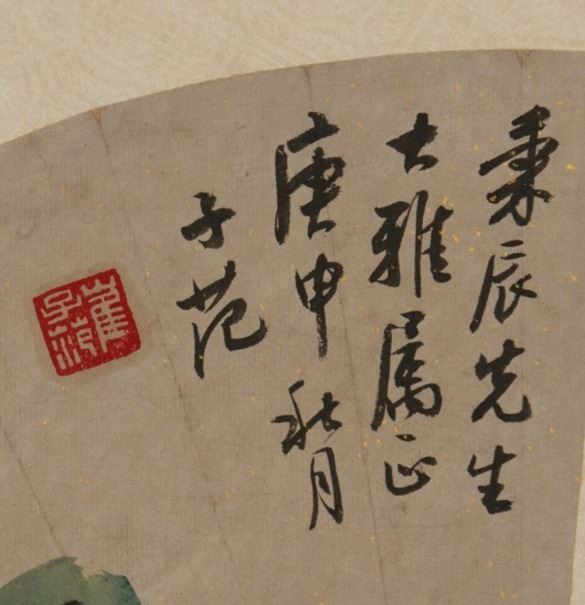 秉辰先生
大雅属正
庚申秋月
子范
崔子范